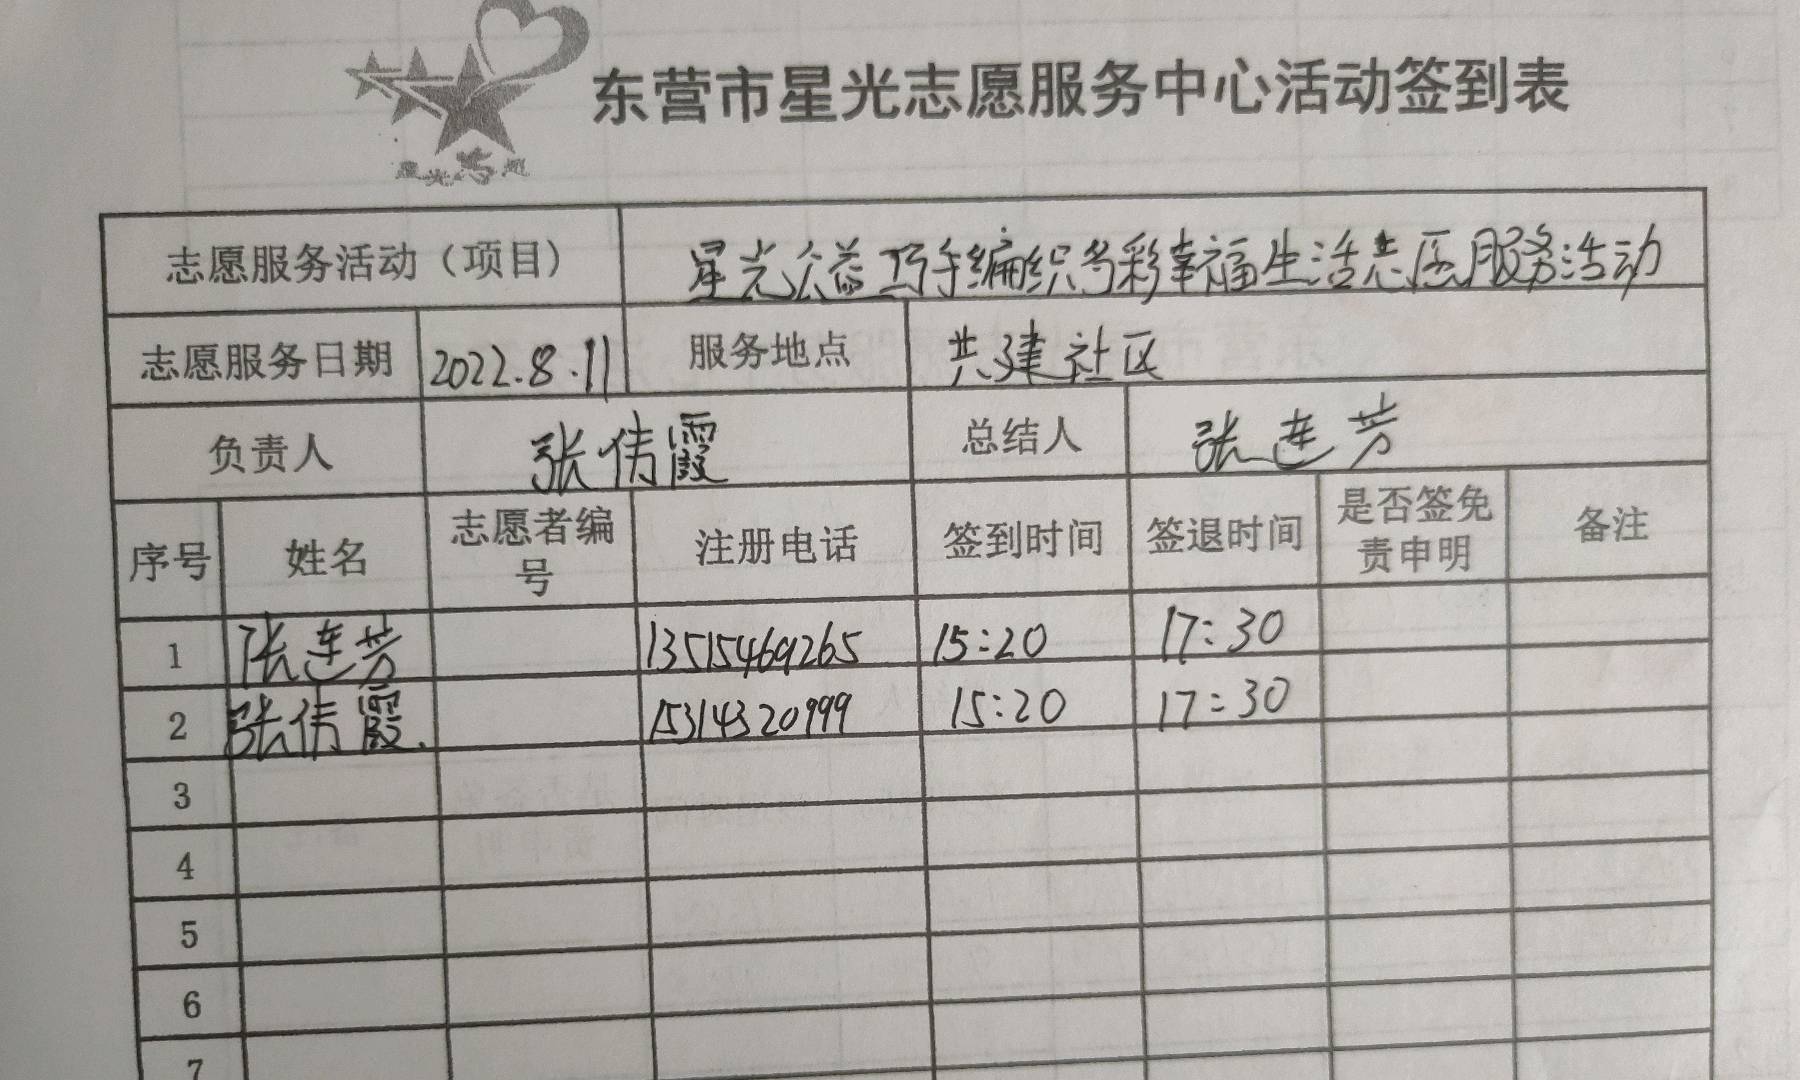 星光志愿
东营市星光志愿服务中心活动签到表
志愿服务活动（项目） 星光公益巧手编织多彩幸福生活志愿服务活动
志愿服务日期 2022.8.11 服务地点 共建社区
负责人 张倩霞 总结人 张莲芳
序号 姓名 志愿者编号 注册电话 签到时间 签退时间 是否签免责申明 备注
1 张莲芳 13515469265 15:20 17:30
2 张倩霞. 15314320999 15:20 17:30
3
4
5
6
7